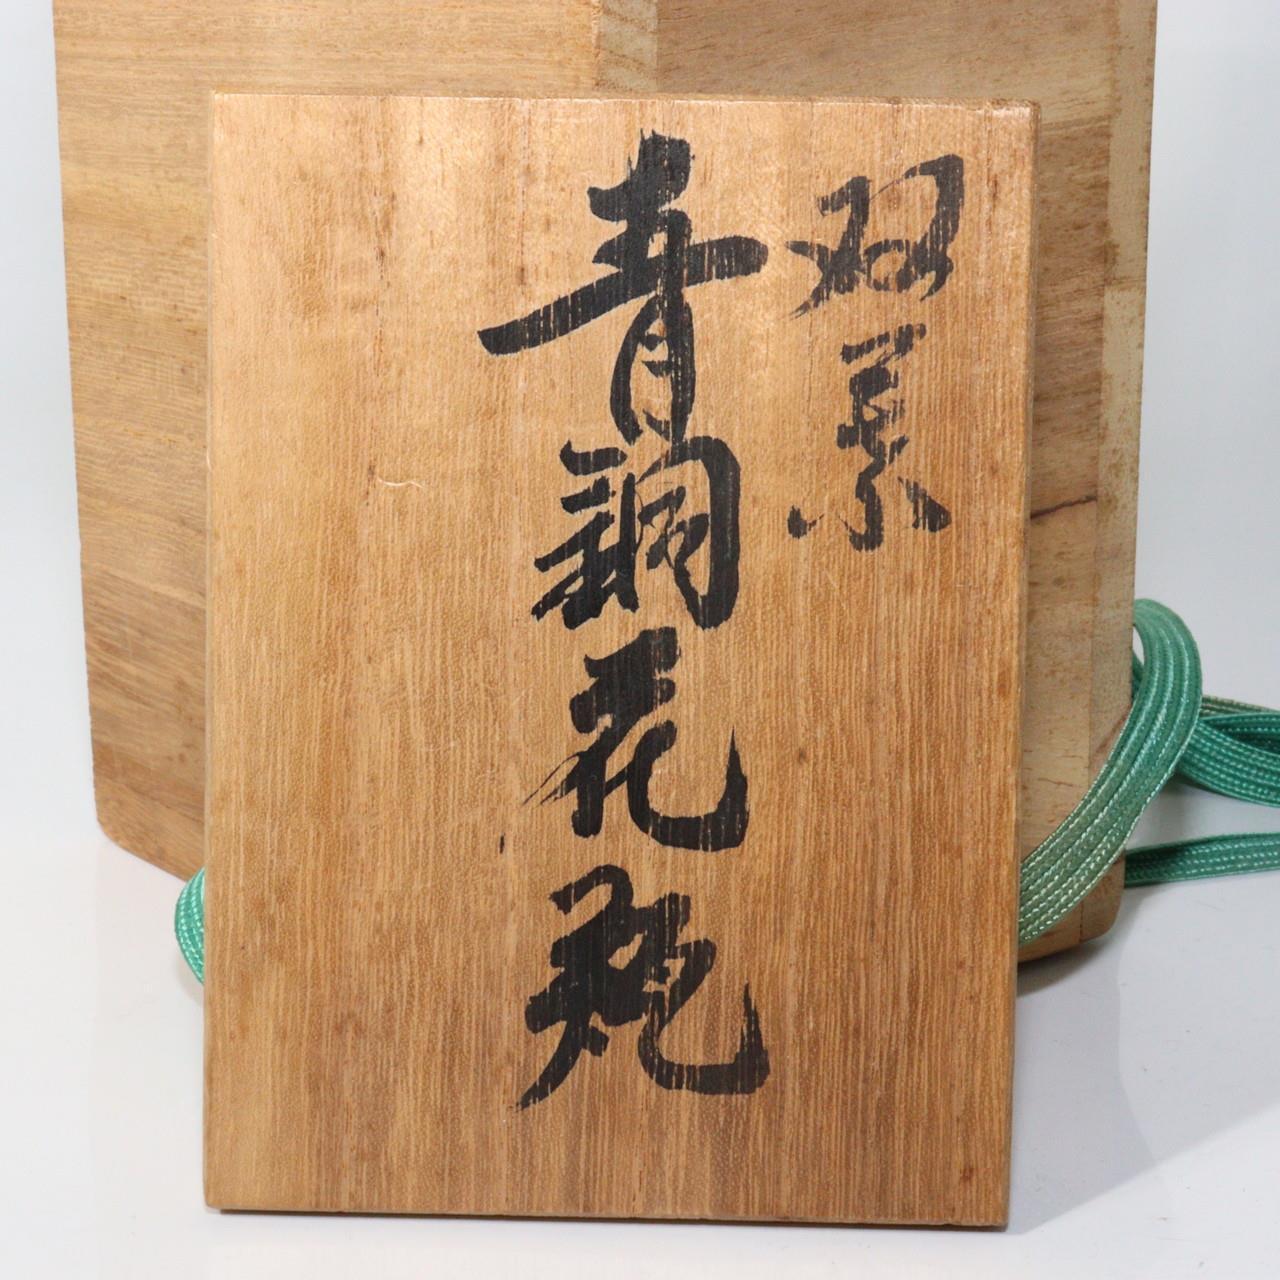 双葉
青銅花瓶